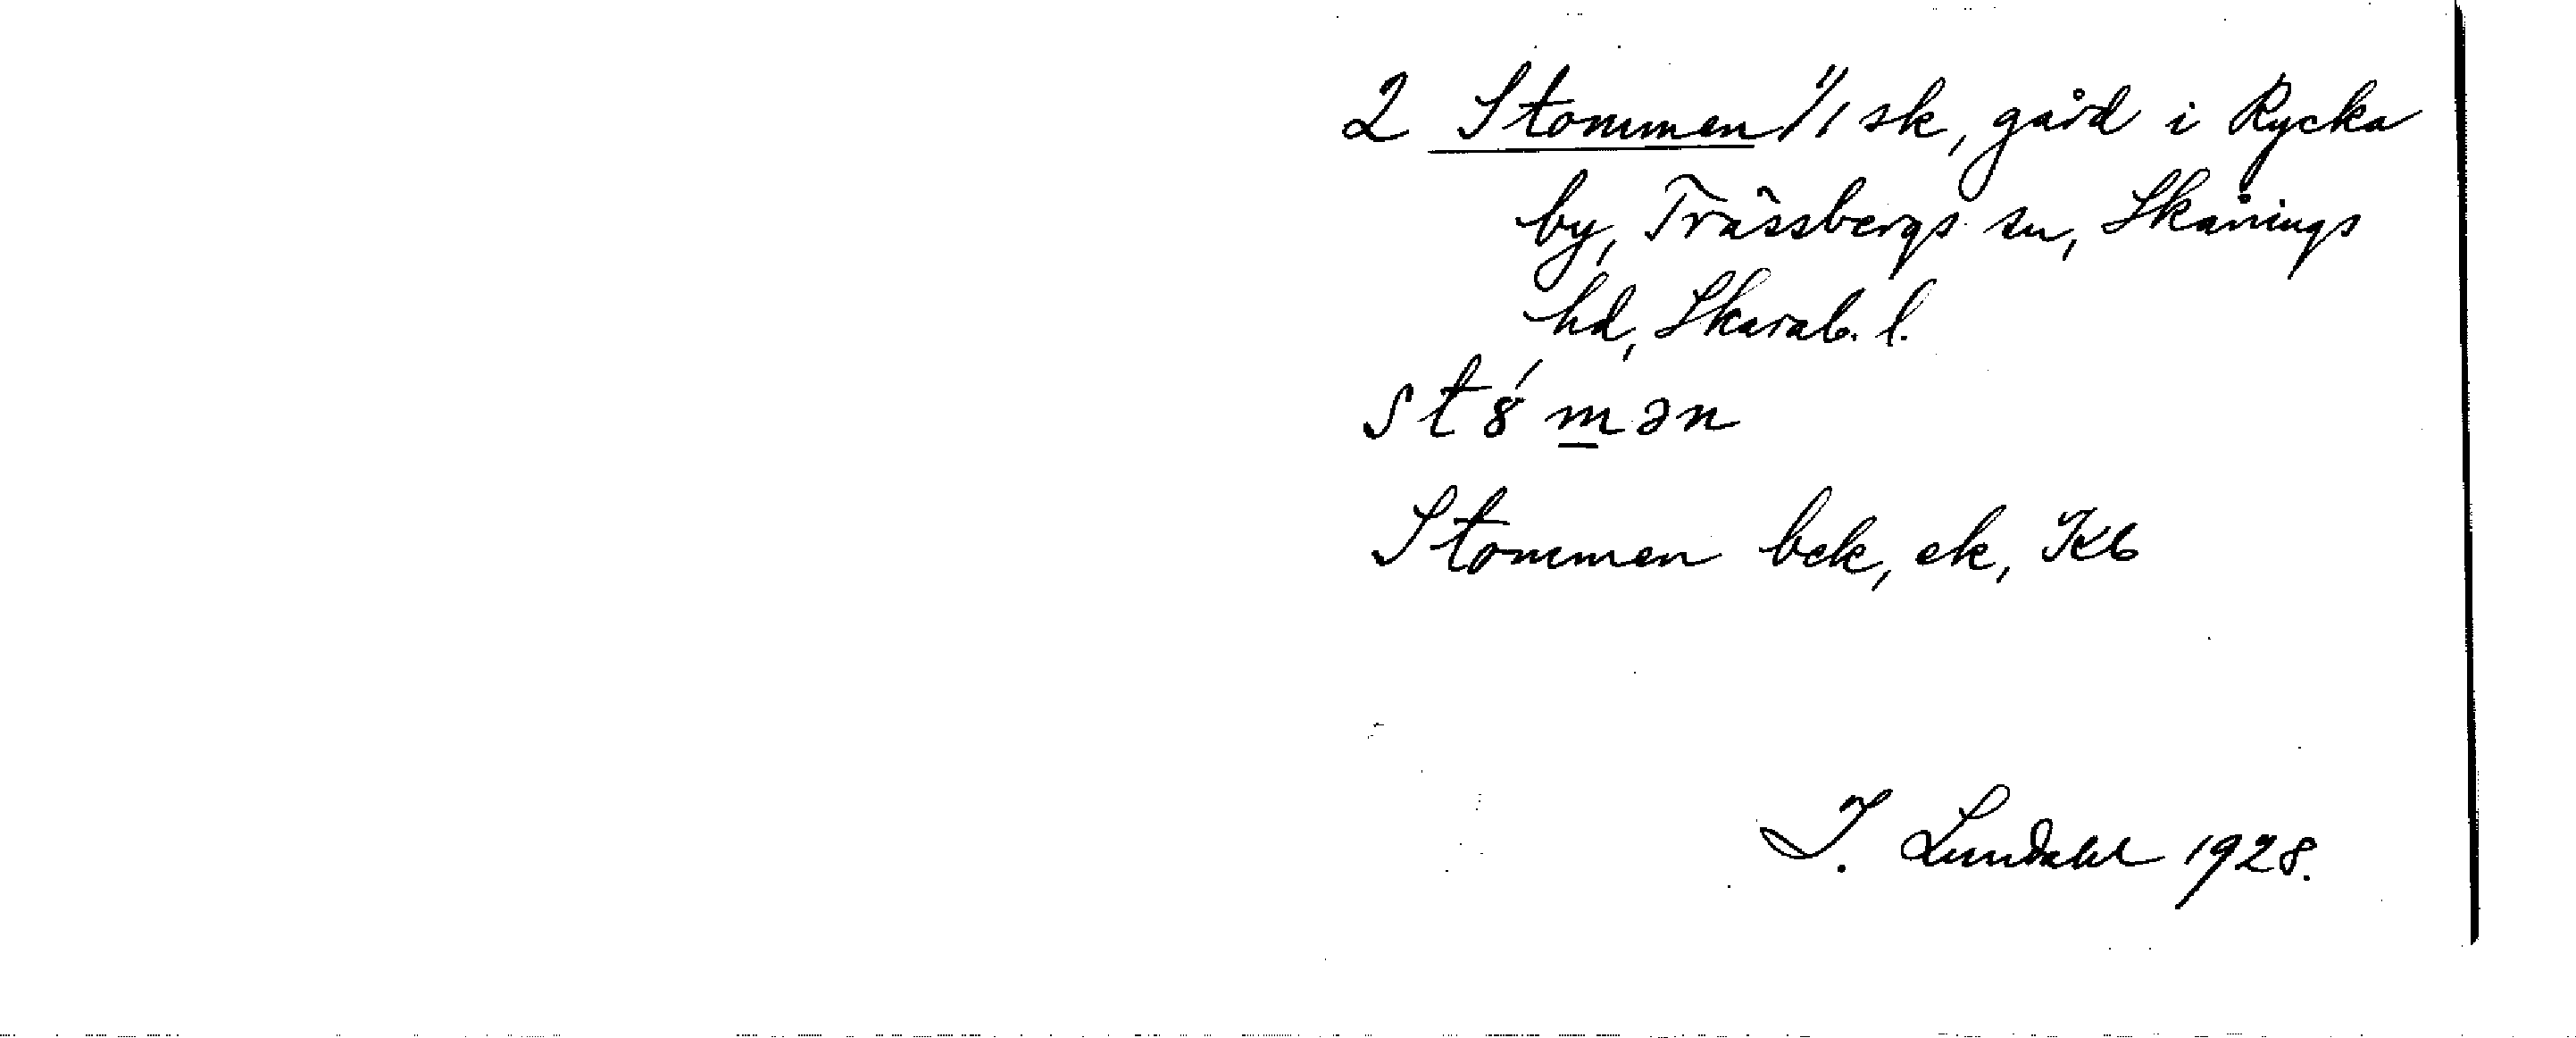 2 Stommen 1/1 sk, gård i Rycka
by, Trässbergs sn, Skånings
hd, Skarab. l.
st8́m̲ən
Stommen bek, ek, Kb
I. Lundahl 1928.